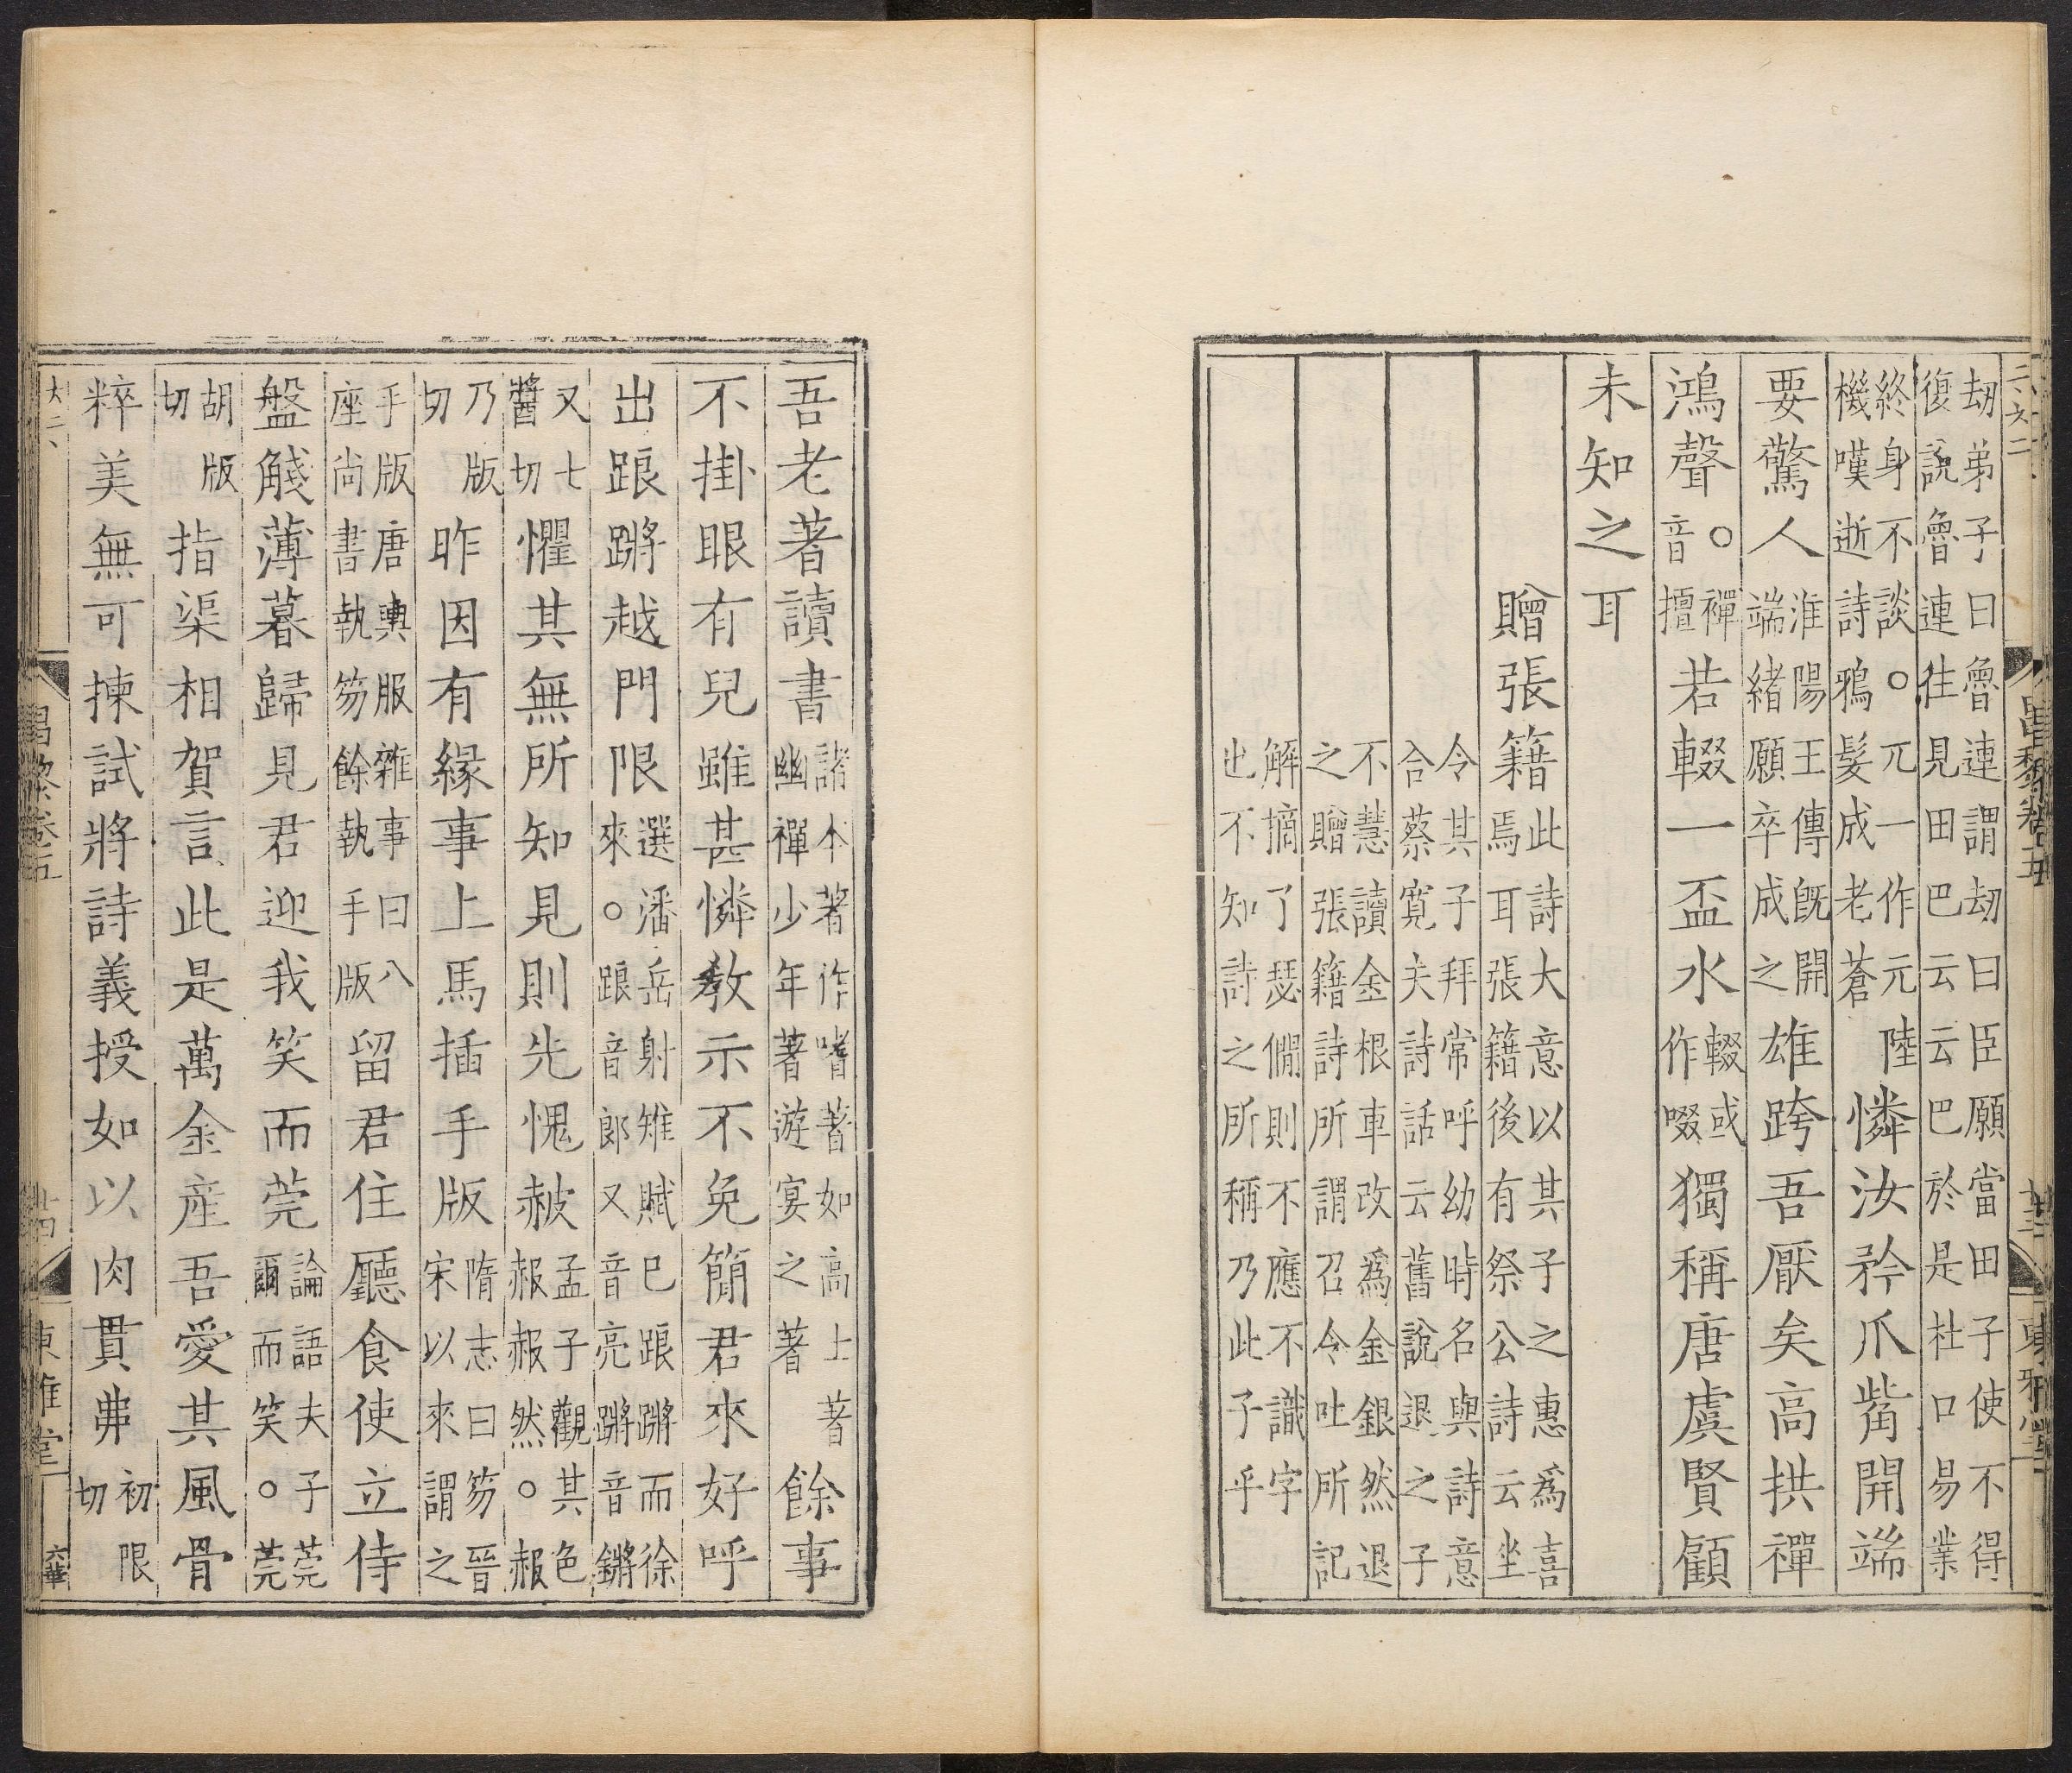 劫弟子曰魯連謂劫曰臣願當田子使不得
復說魯連往見田巴云云巴於是杜口易業
終身不談○兀一作元陸機嘆逝詩鴉髮成老蒼憐汝矜爪觜開端
要驚人淮陽王傳旣開端緒願卒成之雄跨吾厭矣高拱禪
鴻聲○禪音擅若輟一盃水輟或作啜獨稱唐虞賢顧
未知之耳
贈張籍此詩大意以其子之惠爲喜焉耳張籍後有祭公詩云坐
令其子拜常呼幼時名與詩意合蔡寬夫詩話云舊說退之子
不慧讀金根車改爲金銀然退之贈張籍詩所謂召令吐所記
解摘了瑟僩則不應不識字也不知詩之所稱乃此子乎
昌黎卷五
東雅堂
吾老著讀書諸本著作嗜著如高上著幽禪少年著遊宴之著餘事
不掛眼有兒雖甚憐敎示不免簡君來好呼
出踉蹡越門限選潘岳射雉賦已踉蹡而徐來○踉音郎又音亮蹡音鏘
又七醬切懼其無所知見則先愧赧孟子觀其色赧赧然○赧
乃版切昨因有緣事上馬插手版隋志曰笏晉宋以來謂之
手版唐輿服雜事曰八座尚書執笏餘執手版留君住廳食使立侍
盤醆薄暮歸見君迎我笑而莞論語夫子莞爾而笑○莞
胡版切指渠相賀言此是萬金産吾愛其風骨
粹美無可揀試將詩義授如以肉貫弗初限切
昌黎卷五
十四
東雅堂
六華